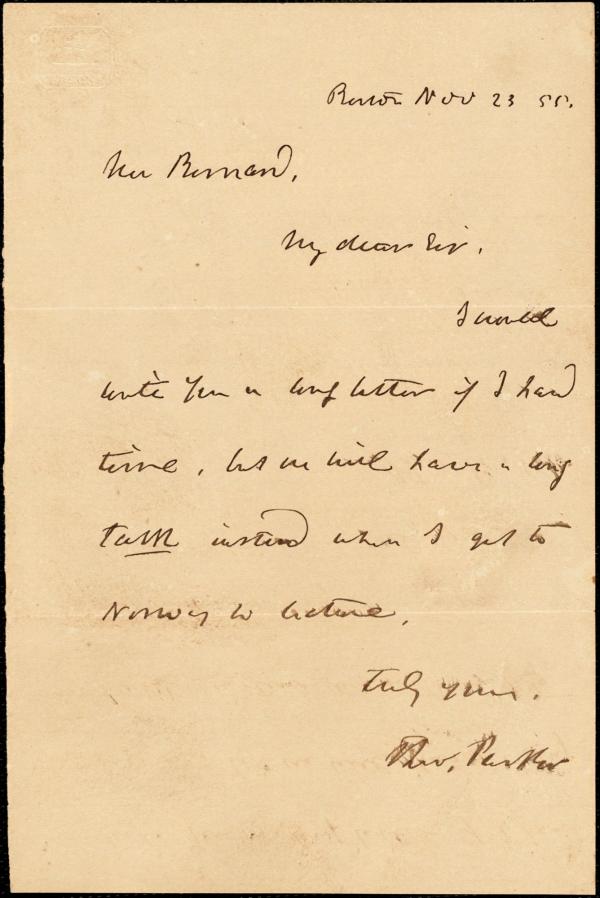 Boston Nov 23 55.
Mr Barnard,
My dear Sir.
I would
write you a long letter if I had
time, but we will have a long
talk instead when I get to
Norway to lecture.
truly yours.
Theo. Parker